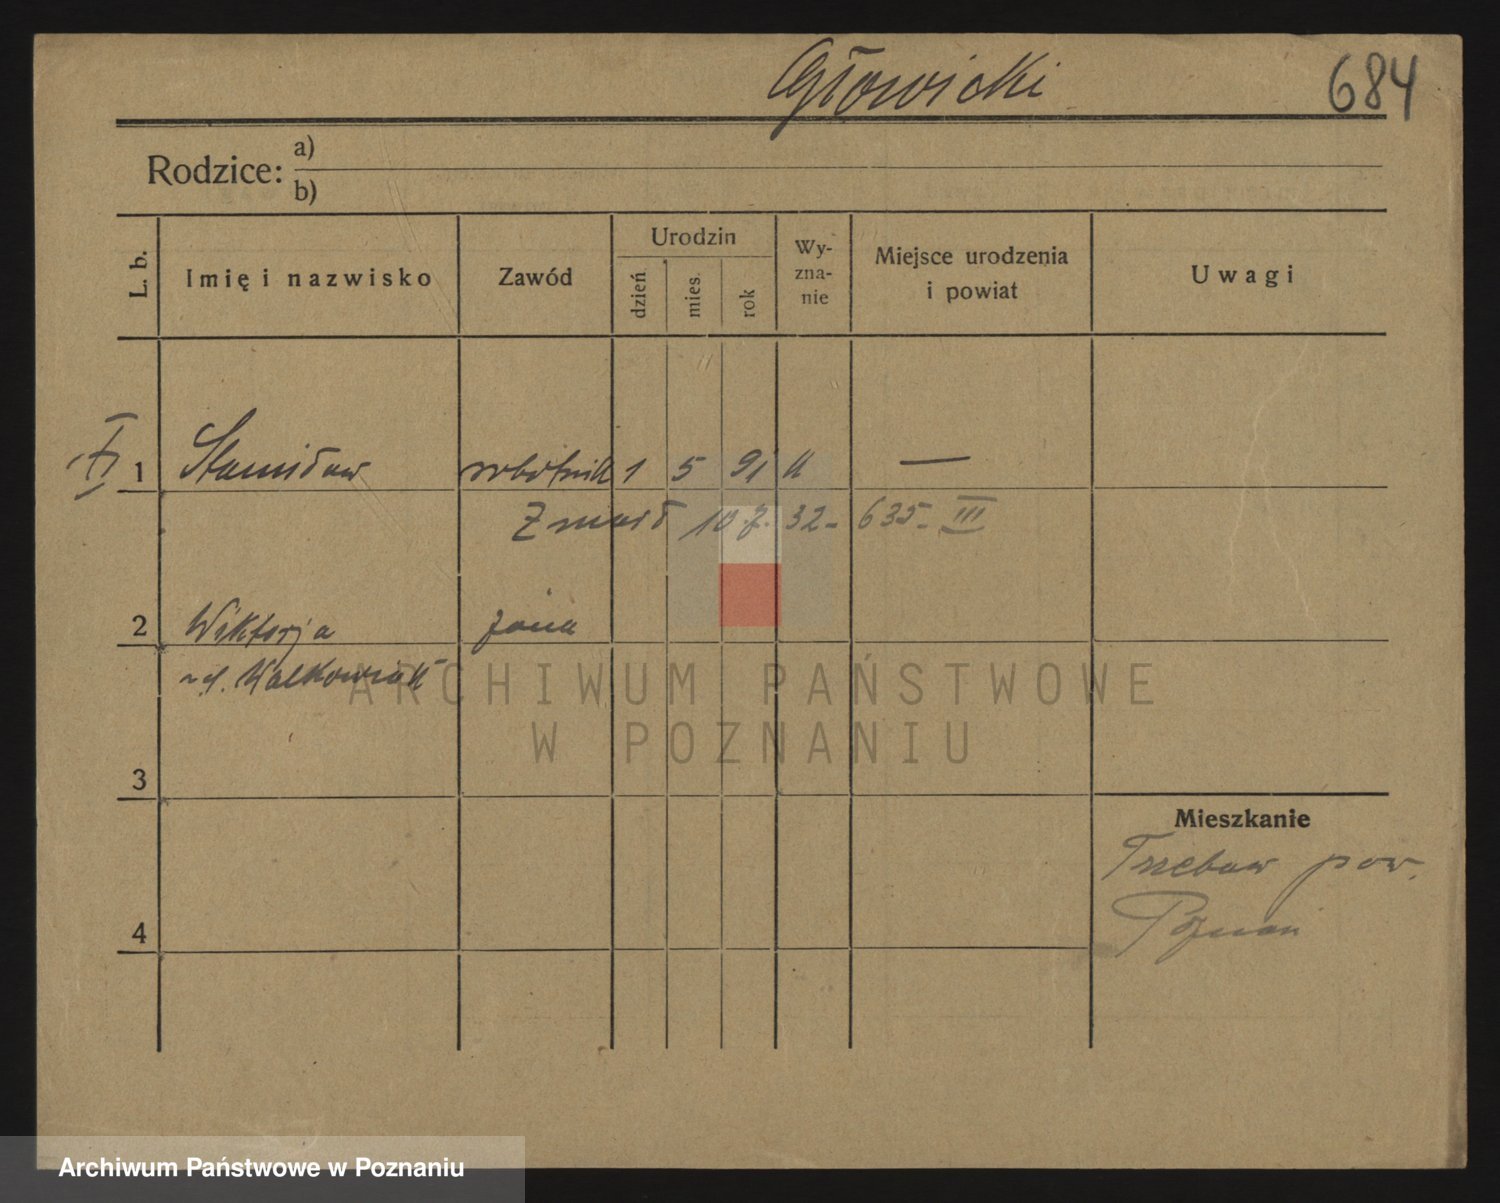 Głowicki 684
Rodzice: a)
b)
L. b. Imię i nazwisko Zawód Urodzin dzień mies. rok Wy-zna-nie Miejsce urodzenia i powiat Uwagi
1 Stanisław robotnik 1 5 91 k —
Zmarł 10.7.32- 635- III
2 Wiktorja żona
Walkowiak
3
Mieszkanie
Trzebaw pow.
Poznań
4
ARCHIWUM PAŃSTWOWE
W POZNANIU
Archiwum Państwowe w Poznaniu